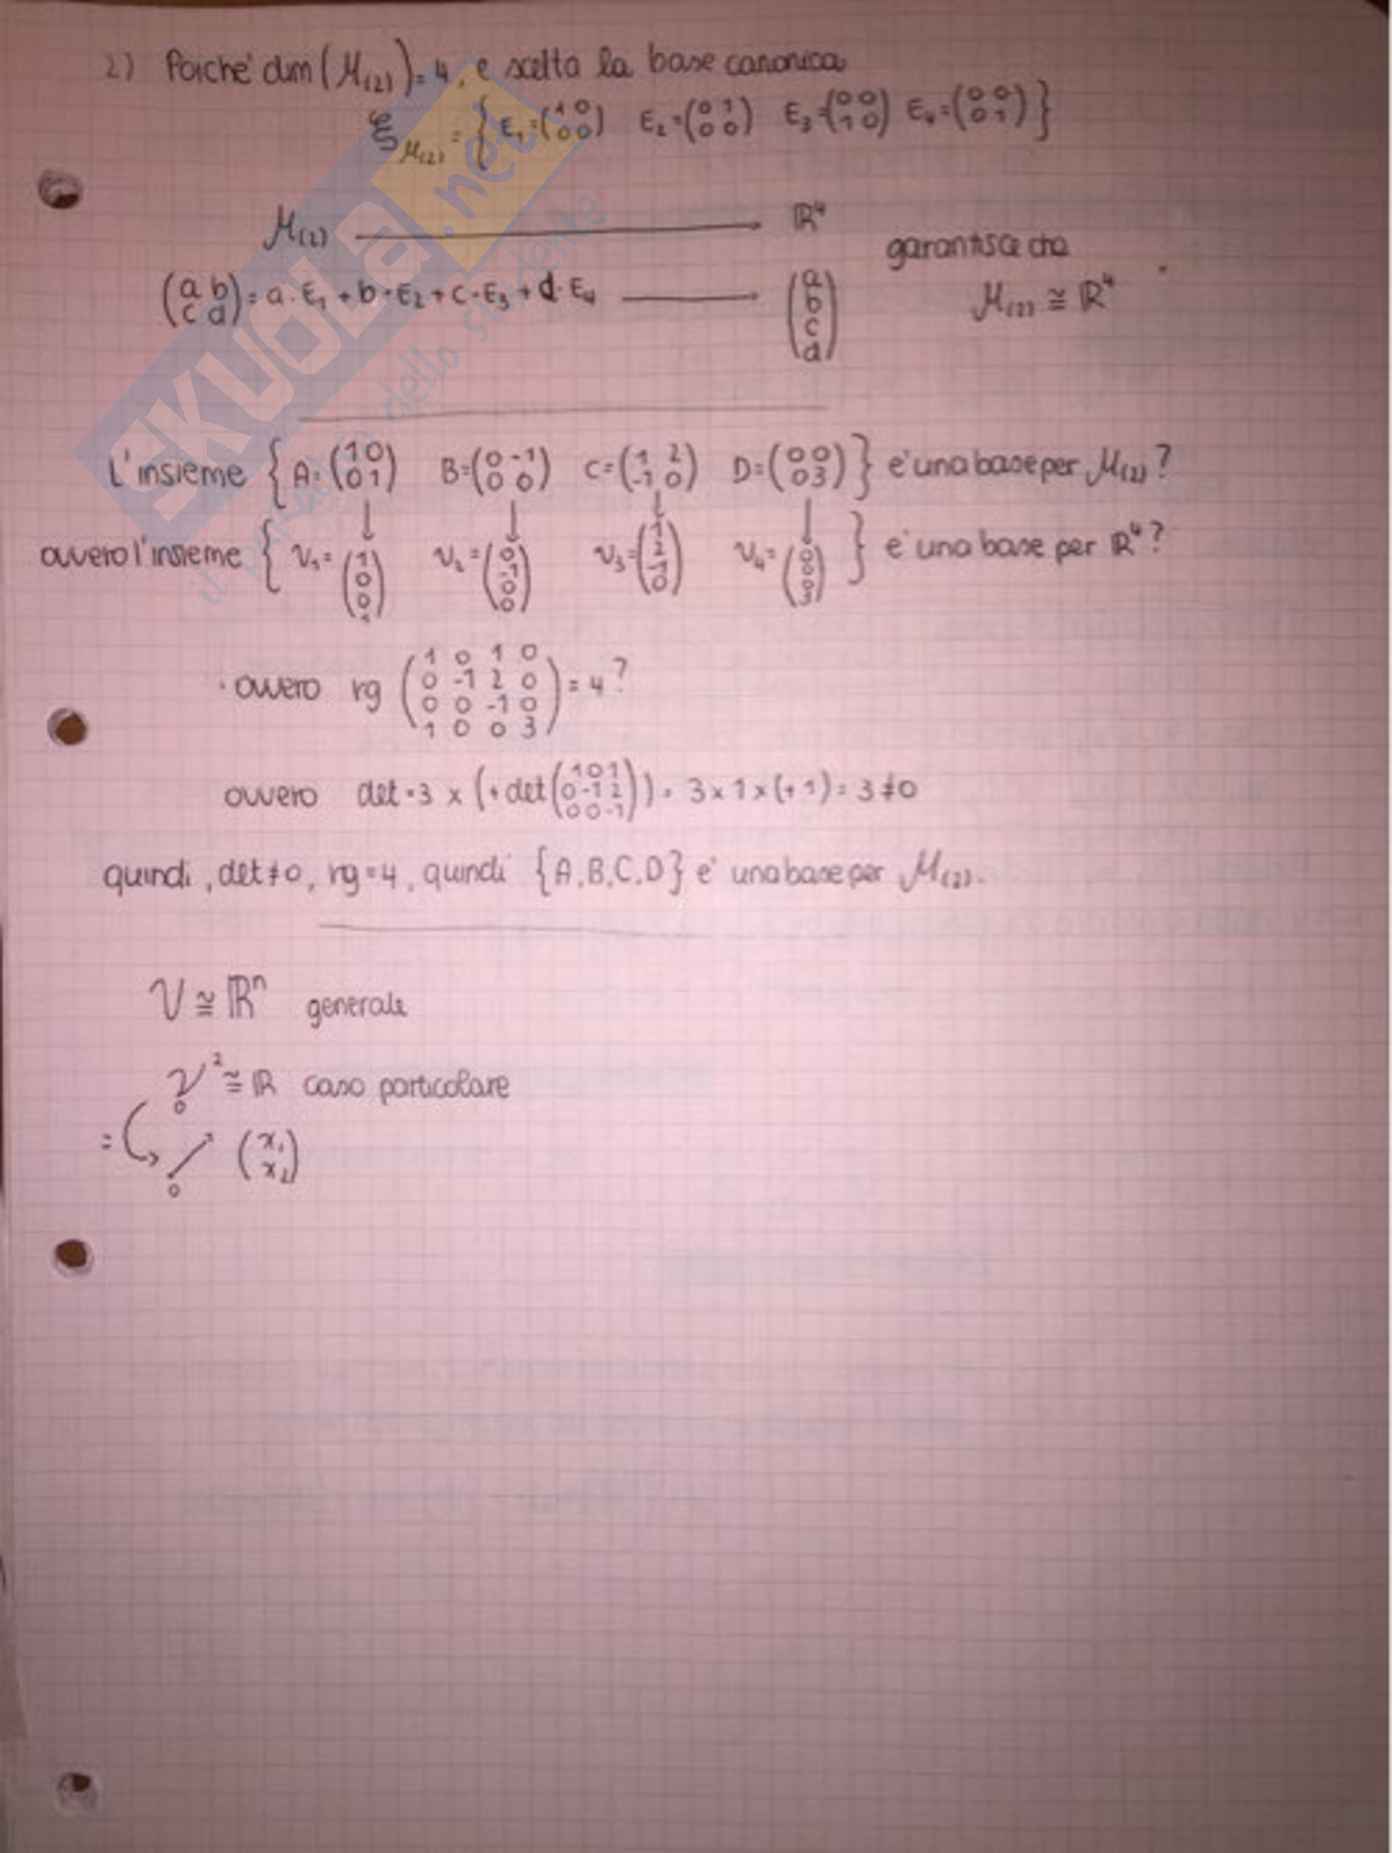 2) Poiché dim (M(2)) = 4, e scelta la base canonica
ξM(2) = { E1=(1 0 / 0 0) E2=(0 1 / 0 0) E3=(0 0 / 1 0) E4=(0 0 / 0 1) }
M(2) → ℝ⁴
garantisce che
(a b / c d) = a·E1 + b·E2 + c·E3 + d·E4 → (a / b / c / d)
M(2) ≅ ℝ⁴
L'insieme { A=(1 0 / 0 1) B=(0 -1 / 0 0) C=(1 2 / -1 0) D=(0 0 / 0 3) } e' una base per M(2)?
ovvero l'insieme { v1=(1 / 0 / 0 / 1) v2=(0 / -1 / 0 / 0) v3=(1 / 2 / -1 / 0) v4=(0 / 0 / 0 / 3) } e' una base per ℝ⁴?
· ovvero rg (1 0 1 0 / 0 -1 2 0 / 0 0 -1 0 / 1 0 0 3) = 4?
ovvero det = 3 x (+ det (1 0 1 / 0 -1 2 / 0 0 -1)) = 3 x 1 x (+1) = 3 ≠ 0
quindi, det ≠ 0, rg = 4, quindi {A, B, C, D} e' una base per M(2).
V ≅ ℝⁿ generale
V²o ≅ ℝ caso particolare
= o (x1 / x2)
SKUOLA.net
dello studente